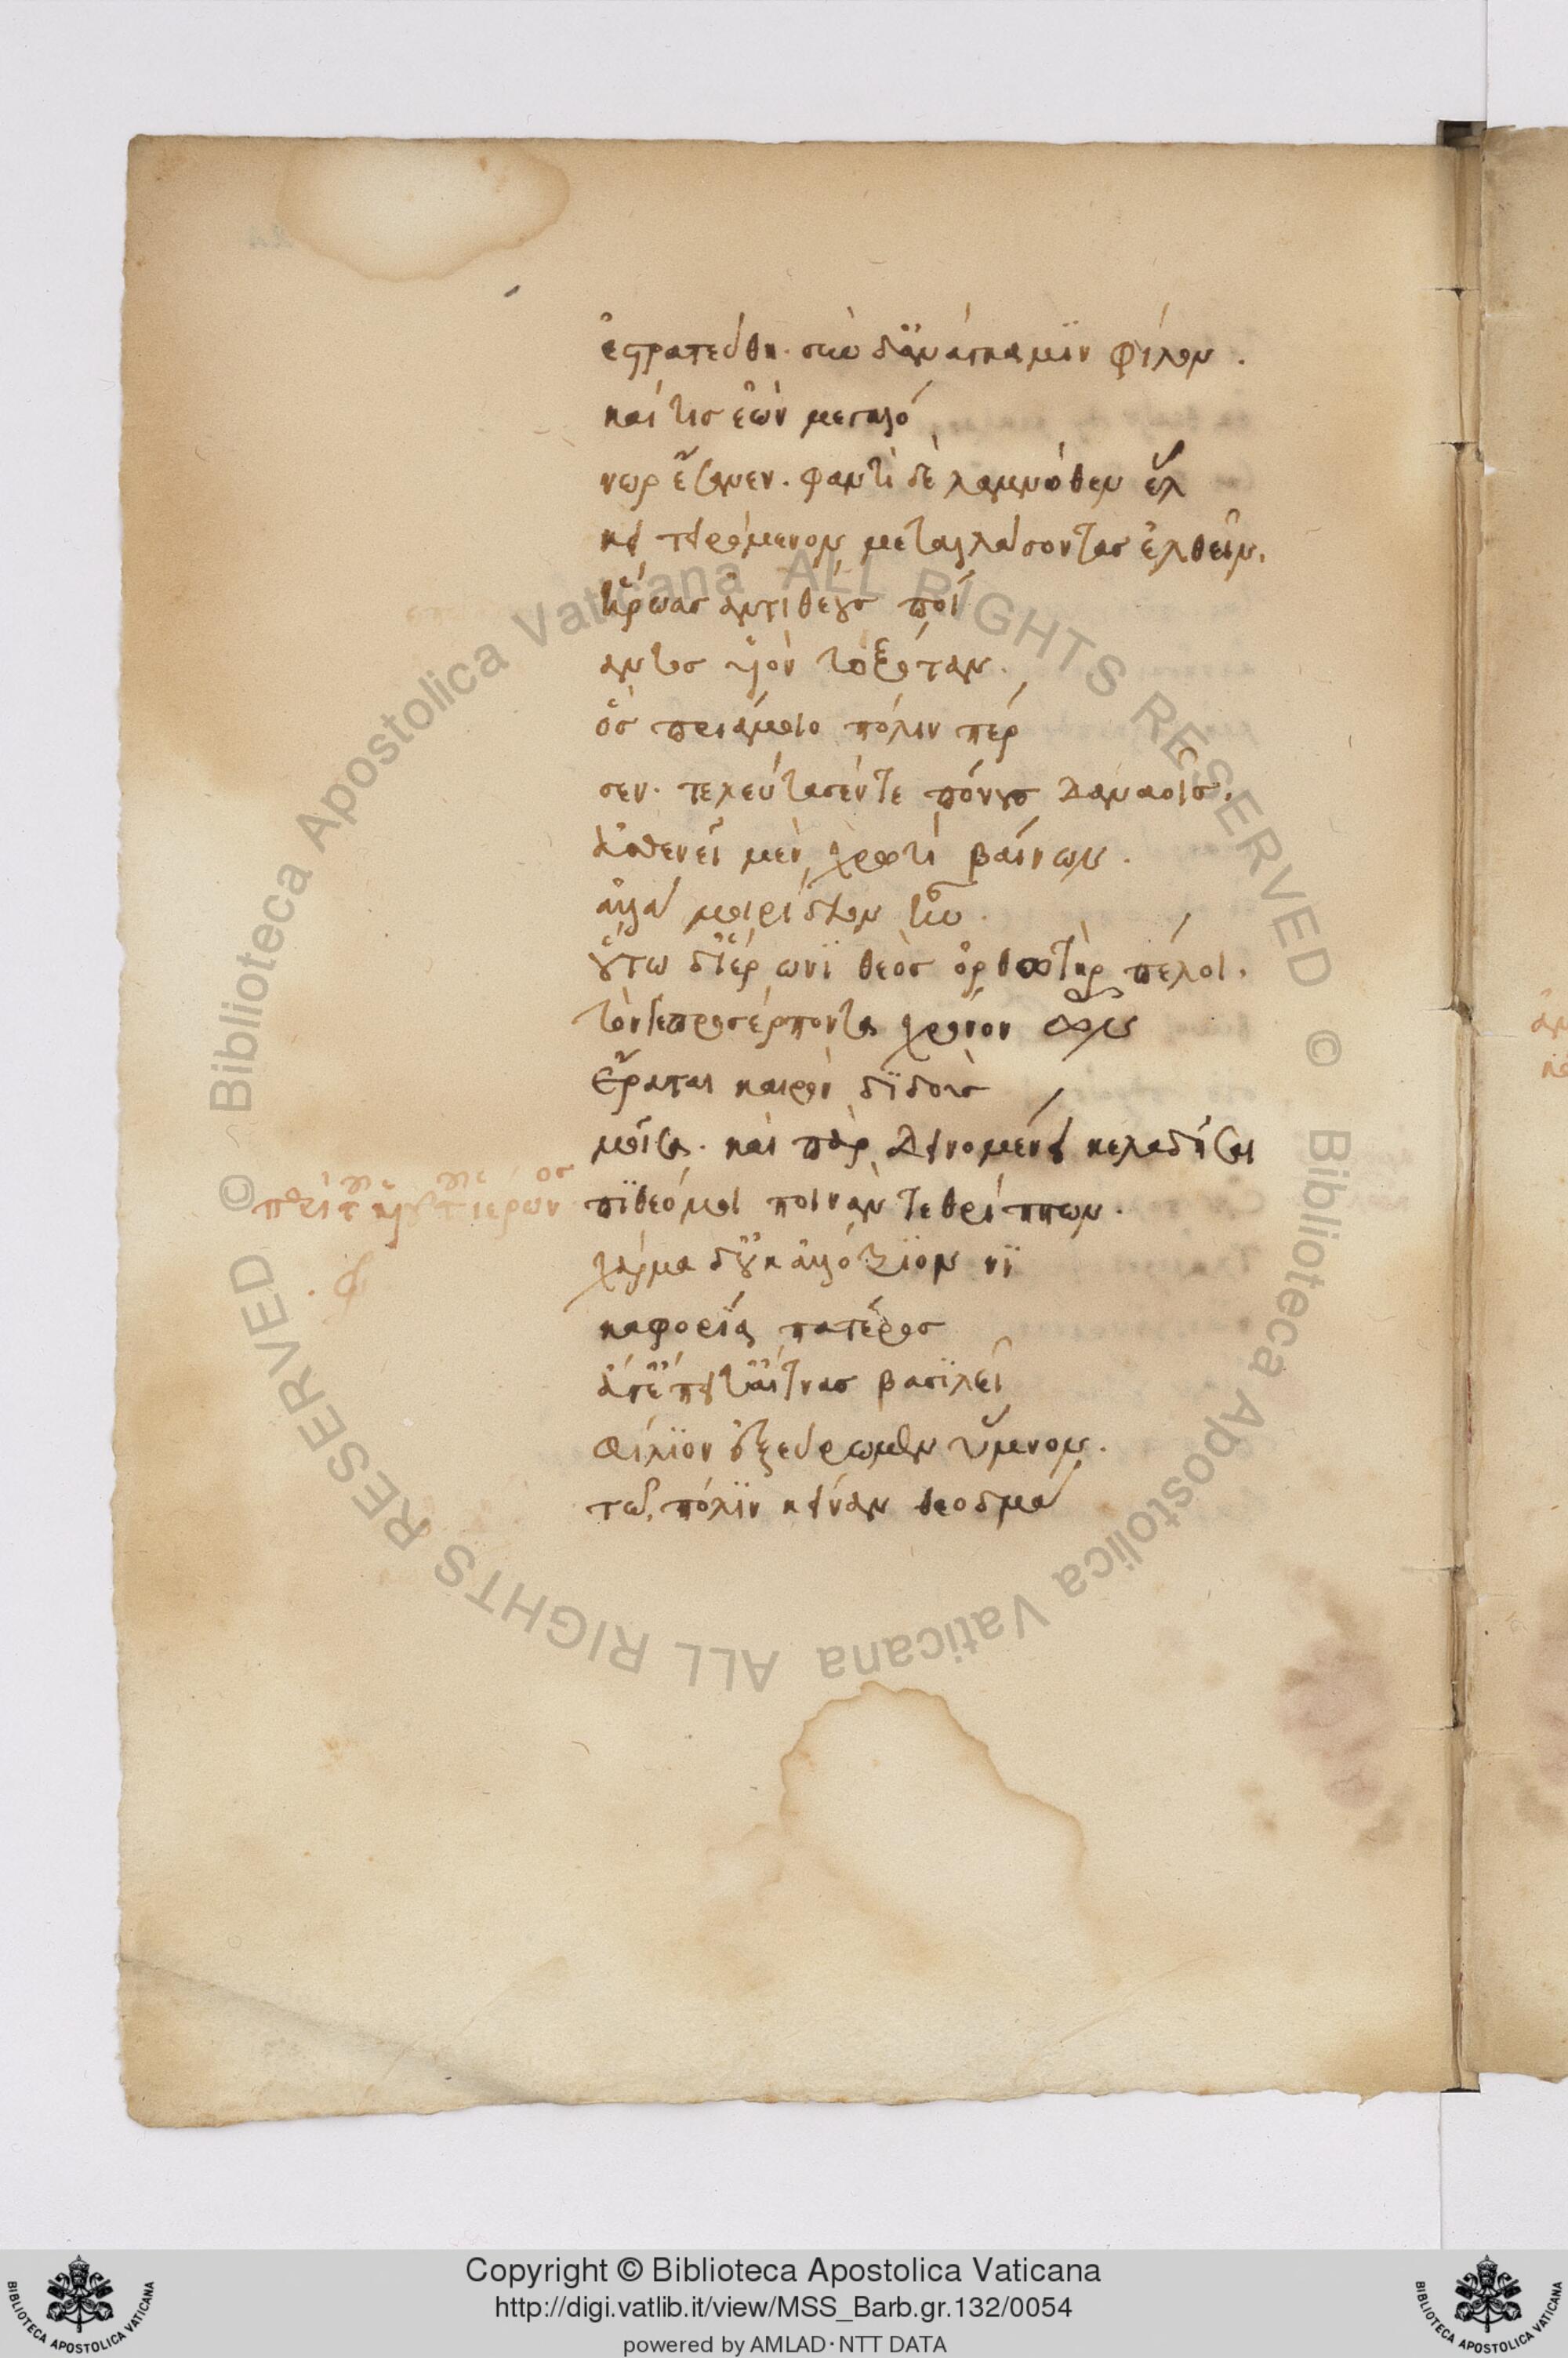 ἐστρατεύθη· σὺν δ' ἀνάγκα μϊν φίλον.
καί τις ἐὼν μεγαλά
νωρ ἔσανεν. φαντὶ δὲ λαμνόθεν ἕλ
κει τειρόμενον μεταλλάσοντας ἐλθεῖν.
ἥρωας ἀντιθέους ποί
αντος υἱὸν τοξόταν.
ὃς πριάμοιο πόλιν πέρ
σεν. τελεύτασέν τε πόνους δαναοῖς.
ἀσθενεῖ μὲν χρωτὶ βαίνων.
ἀλλὰ μοιρίδιον ἦν.
οὕτω δ' ἱέρωνϊ θεὸς ὀρθωτὴρ πέλοι.
τὸν προσέρποντα χρόνον
ἔραται καιρὸν δϊδοὺς
μοῖσα. καὶ πὰρ δεινομένει κελαδῆσαι
πϊθεό μοι ποινὰν τεθρίππων.
χάρμα δ' οὐκ ἀλλότριον νϊ
καφορία πατέρος
ἄγ' ἔπειτ' αἴτνας βασϊλεῖ
φίλϊον ἐξεύρωμεν ὕμνον.
τῶ, πόλϊν κείναν θεοδμά
Copyright © Biblioteca Apostolica Vaticana
http://digi.vatlib.it/view/MSS_Barb.gr.132/0054
powered by AMLAD·NTT DATA
© Biblioteca Apostolica Vaticana ALL RIGHTS RESERVED © Biblioteca Apostolica Vaticana ALL RIGHTS RESERVED
BIBLIOTECA APOSTOLICA VATICANA
BIBLIOTECA APOSTOLICA VATICANA